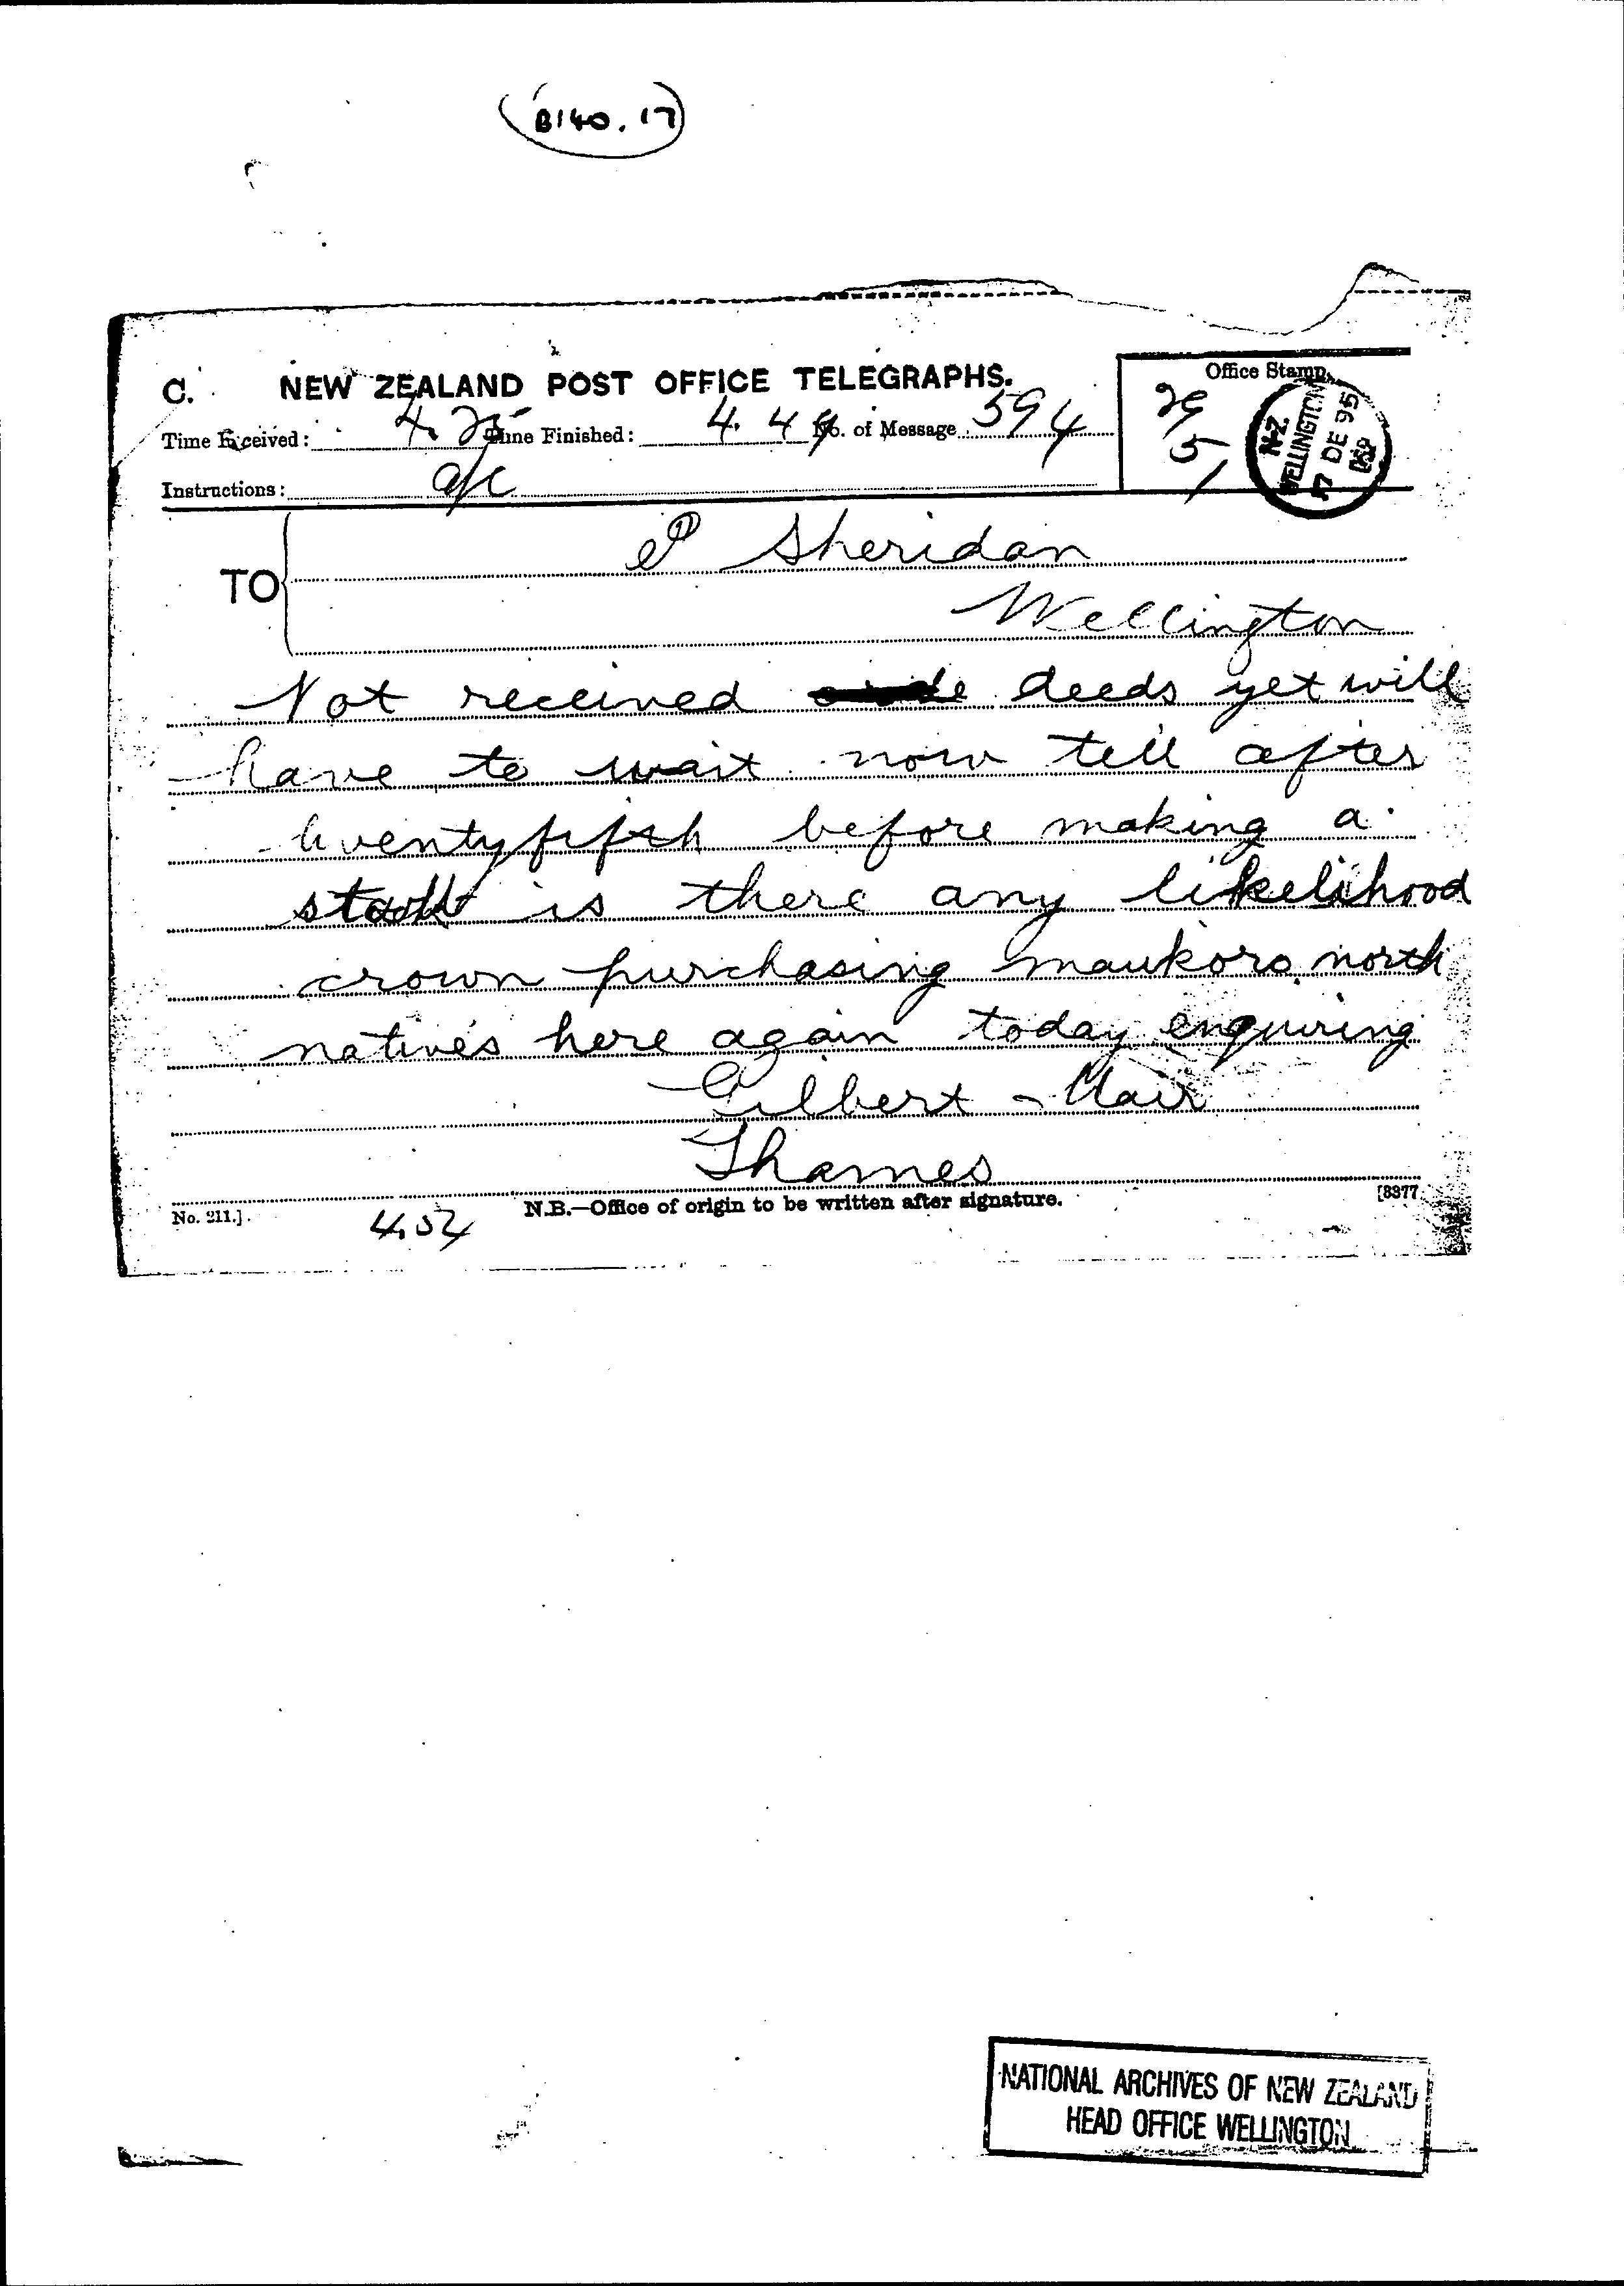 B140.17
C. NEW ZEALAND POST OFFICE TELEGRAPHS.
Office Stamp.
Time Received: 4.25 Time Finished: 4.44 No. of Message 594
29
51
N.Z.
WELLINGTON
17 DE 95
Instructions:
TO P Sheridan
Wellington
Not received deeds yet will
have to wait now till after
twentyfifth before making a
start is there any likelihood
crown purchasing maukoro north
natives here again today enquiring
Gilbert Mair
Thames
N.B.—Office of origin to be written after signature.
No. 211.]
[8377
4.54
NATIONAL ARCHIVES OF NEW ZEALAND
HEAD OFFICE WELLINGTON